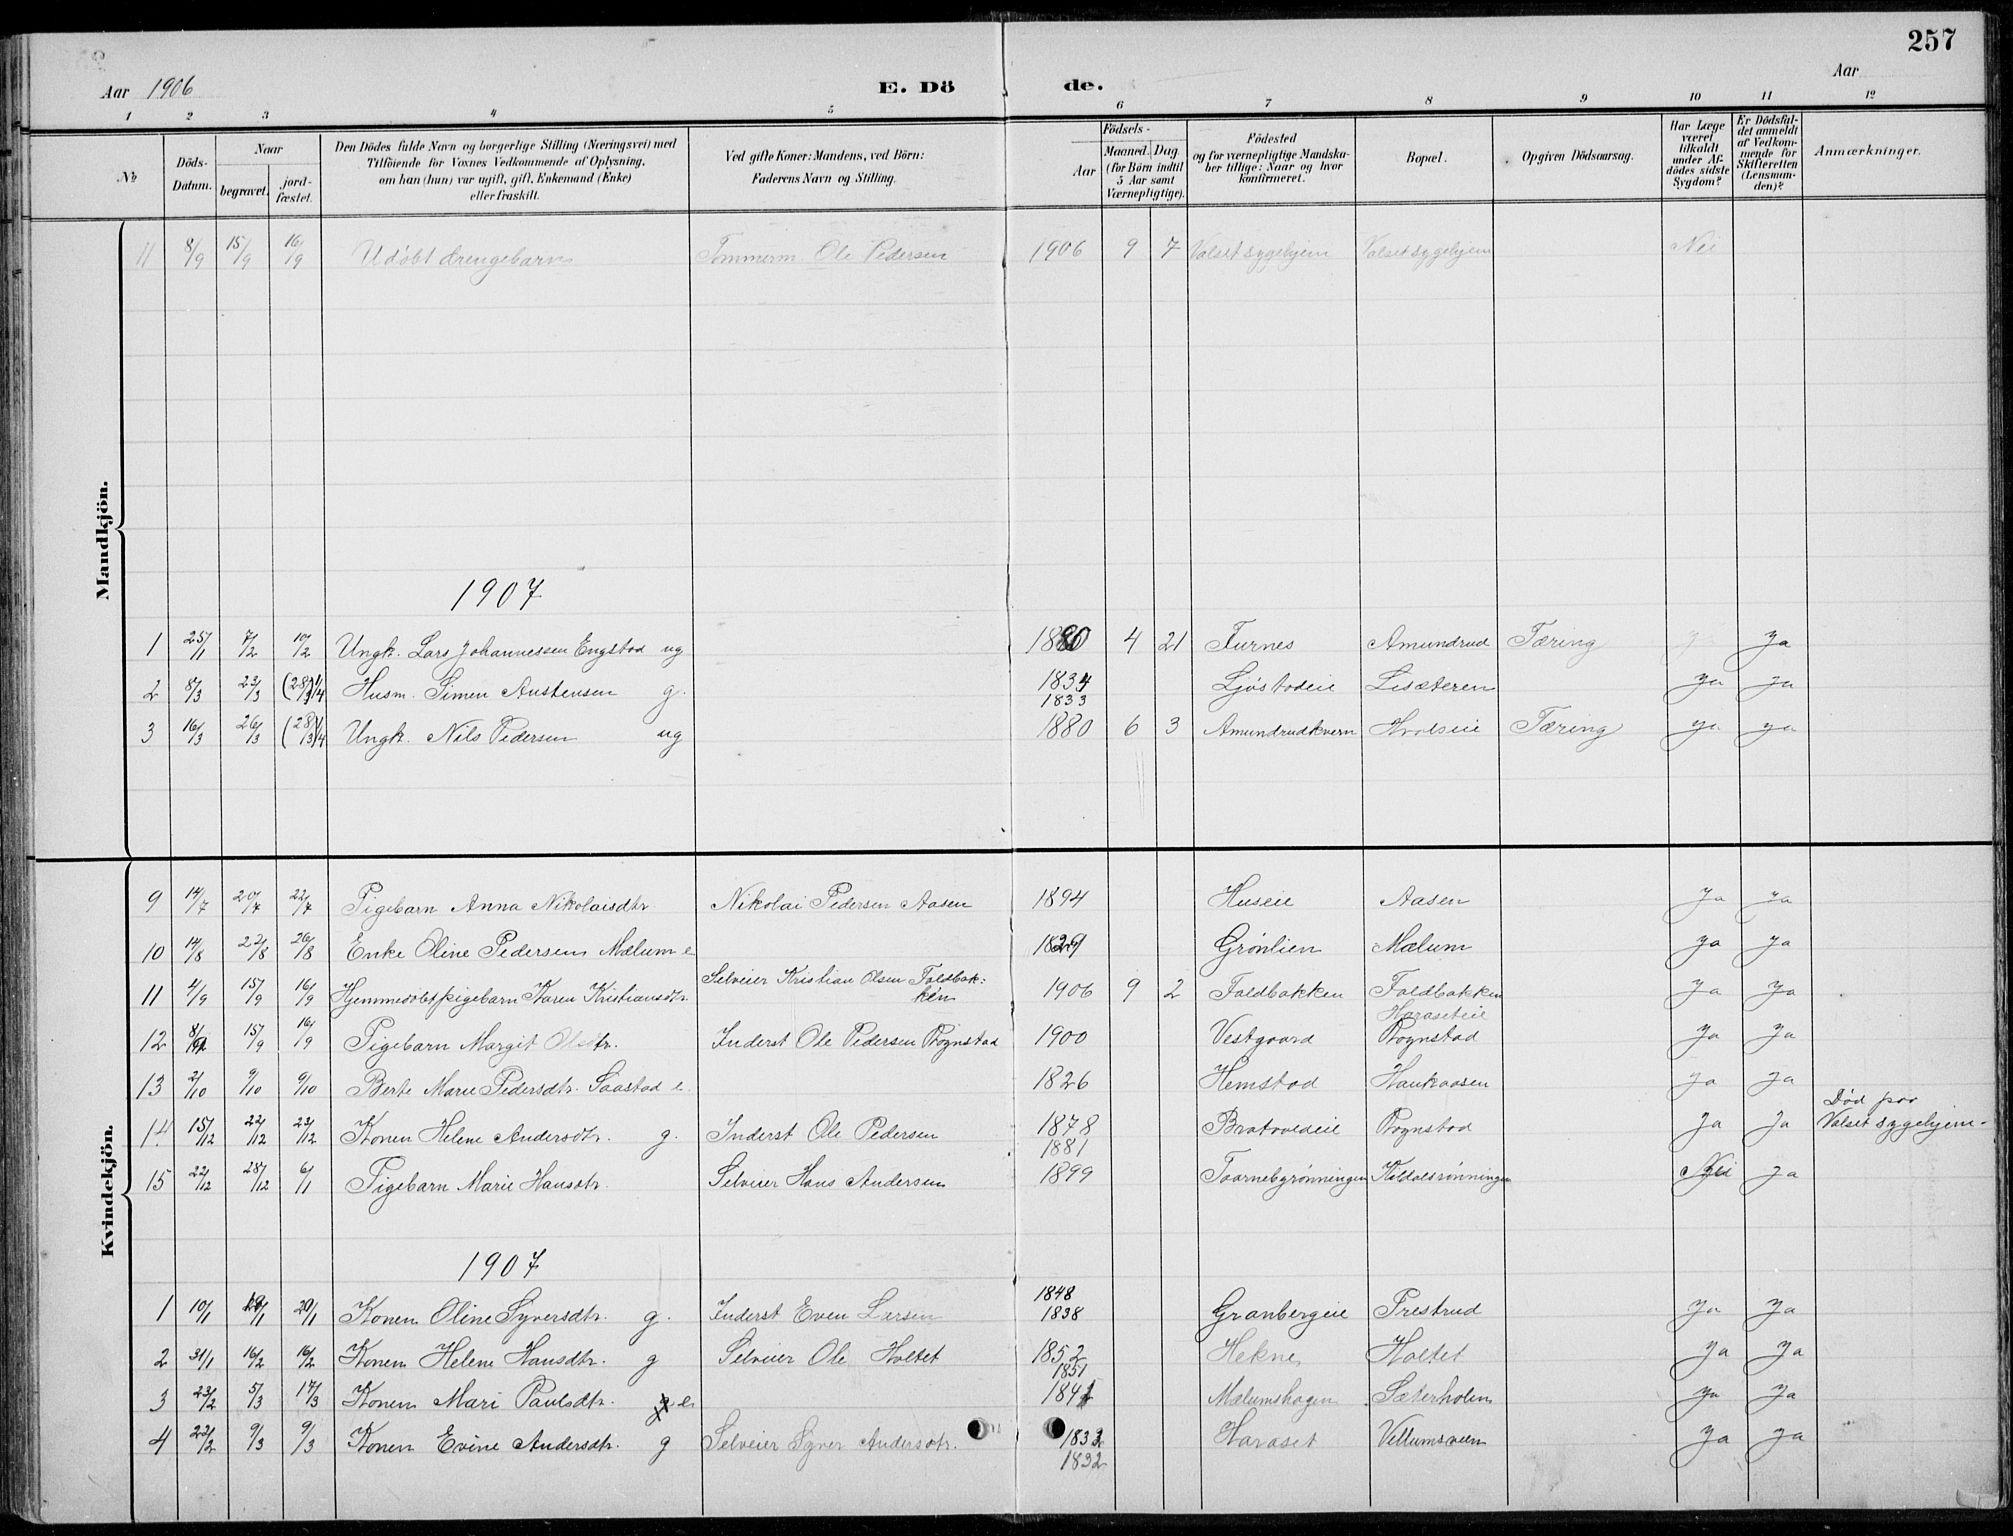 257
Aar 1906
E. Dö de.
Aar
1 2 3 4 5 6 7 8 9 10 11 12
No
Döds-Datum.
Naar
begravet.
jord-fæstet.
Den Dödes fulde Navn og borgerlige Stilling (Næringsvei) med
Tilföiende for Voxnes Vedkommende af Oplysning,
om han (hun) var ugift, gift, Enkemand (Enke)
eller fraskilt.
Ved gifte Koner: Mandens, ved Börn:
Faderens Navn og Stilling.
Födsels-
Aar
Maaned. Dag
(for Börn indtil
5 Aar samt
Værnepligtige).
Födested
og for værnepligtige Mandska-
ber tillige: Naar og hvor
konfirmeret.
Bopæl.
Opgiven Dödsaarsag.
Har Læge
været
tilkaldt
under Af-
dödes sidste
Sygdom?
Er Dödsfal-
det anmeldt
af Vedkom-
mende for
Skifteretten
(Lensman-
den)?
Anmærkninger.
Mandkjön.
11 8/9 15/9 16/9 Udöbt drengebarn Tømmerm. Ole Pedersen 1906 9 7 Valset sygehjem Valset sygehjem Nei
1907
1 25/1 7/2 10/2 Ungk. Lars Johannessen Engstad ug 1880 4 21 Furnes Amundrud Tæring ja
2 8/3 23/3 (28/3) 1/4 Husm. Simen Austensen g. 1834 Ljøstadeie Lisæteren ja ja
1833
3 16/3 26/3 (28/3) 1/4 Ungk. Nils Pedersen ug 1880 6 3 Amundrudkvern Hvalseie Tæring ja ja
Kvindekjön.
9 14/7 20/7 22/7 Pigebarn Anna Nikolaisdtr Nikolai Pedersen Aasen 1894 Huseie Aasen Ja ja
10 14/8 22/8 26/8 Enke Oline Pedersen Mælum e 1829 Grønlien Mælum ja ja
11 4/9 15/9 16/9 Hjemmedøbt pigebarn Karen Kristiansdtr. Selveier Kristian Olsen Faldbak:
ken 1906 9 2 Faldbakken Faldbakken Ja Ja
Haraseteie
12 8/9 15/9 16/9 Pigebarn Margit Olsdtr. Inderst Ole Pedersen Rognstad 1900 Vestgaard Rognstad Ja Ja
13 2/10 9/10 9/10 Berte Marie Pedersdtr. Saastad e. 1826 Hemstad Haukaasen Ja Ja
14 15/12 22/12 23/12 Konen Helene Andersdtr. g. Inderst Ole Pedersen 1878 Bratvedeie Rognstad Ja Ja Død paa
Valset sygehjem.
1881
15 22/12 28/12 6/1 Pigebarn Marie Hansdtr. Selveier Hans Andersen 1899 Taarnebgrønningen Koldalsrønningen Nei Ja
1907
1848
1 10/1 19/1 20/1 Konen Oline Syversdtr. g. Inderst Even Larsen 1838 Granbergeie Prestrud Ja Ja
2 31/1 16/2 16/2 Konen Helene Hansdtr. g Selveier Ole Holtet 1852 Hekne Holtet Ja Ja
1851
3 23/2 5/3 17/3 Konen Mari Paulsdtr. e. 1841 Mælumshagen Sæterholen Ja Ja
4 22/2 9/3 9/3 Konen Evine Andersdtr. g Selveier Syver Andersdtr. 1833 Haraset Vellumsveen Ja Ja
1832